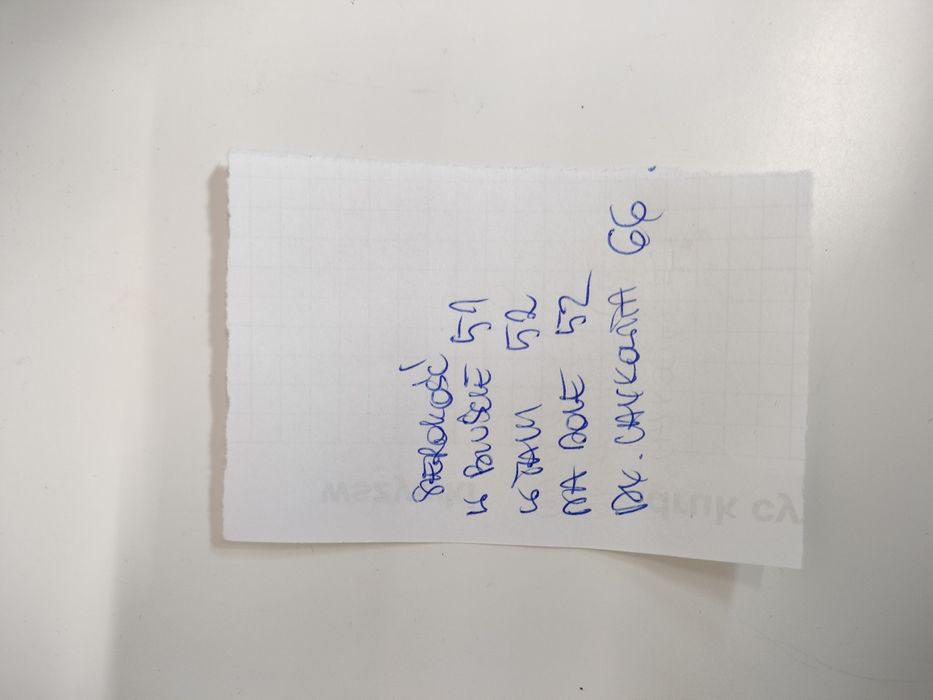 SZEROKOŚĆ
W BIUŚCIE 51
W TALII 52
NA DOLE 52
DŁ. CAŁKOWITA 66
druk cy
wszy